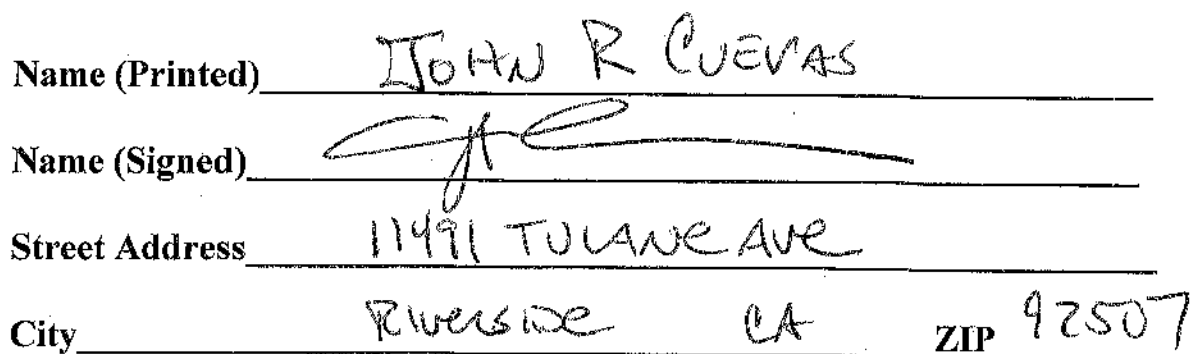 Name (Printed) JOHN R CUEVAS
Name (Signed)
Street Address 11491 TULANE AVE
City RIVERSIDE CA ZIP 92507